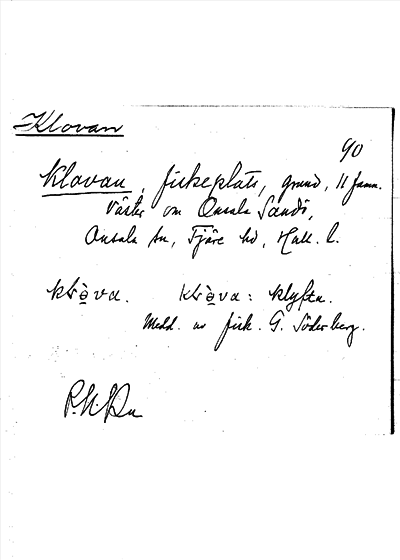 Klovan
90
Klovan, fiskeplats, grund, 11 famn.
väster om Onsala Sandö,
Onsala sn, Fjäre hd, Hall. l.
klò̱va. klò̱va: klyfta.
Medd. av fisk. G. Söderberg.